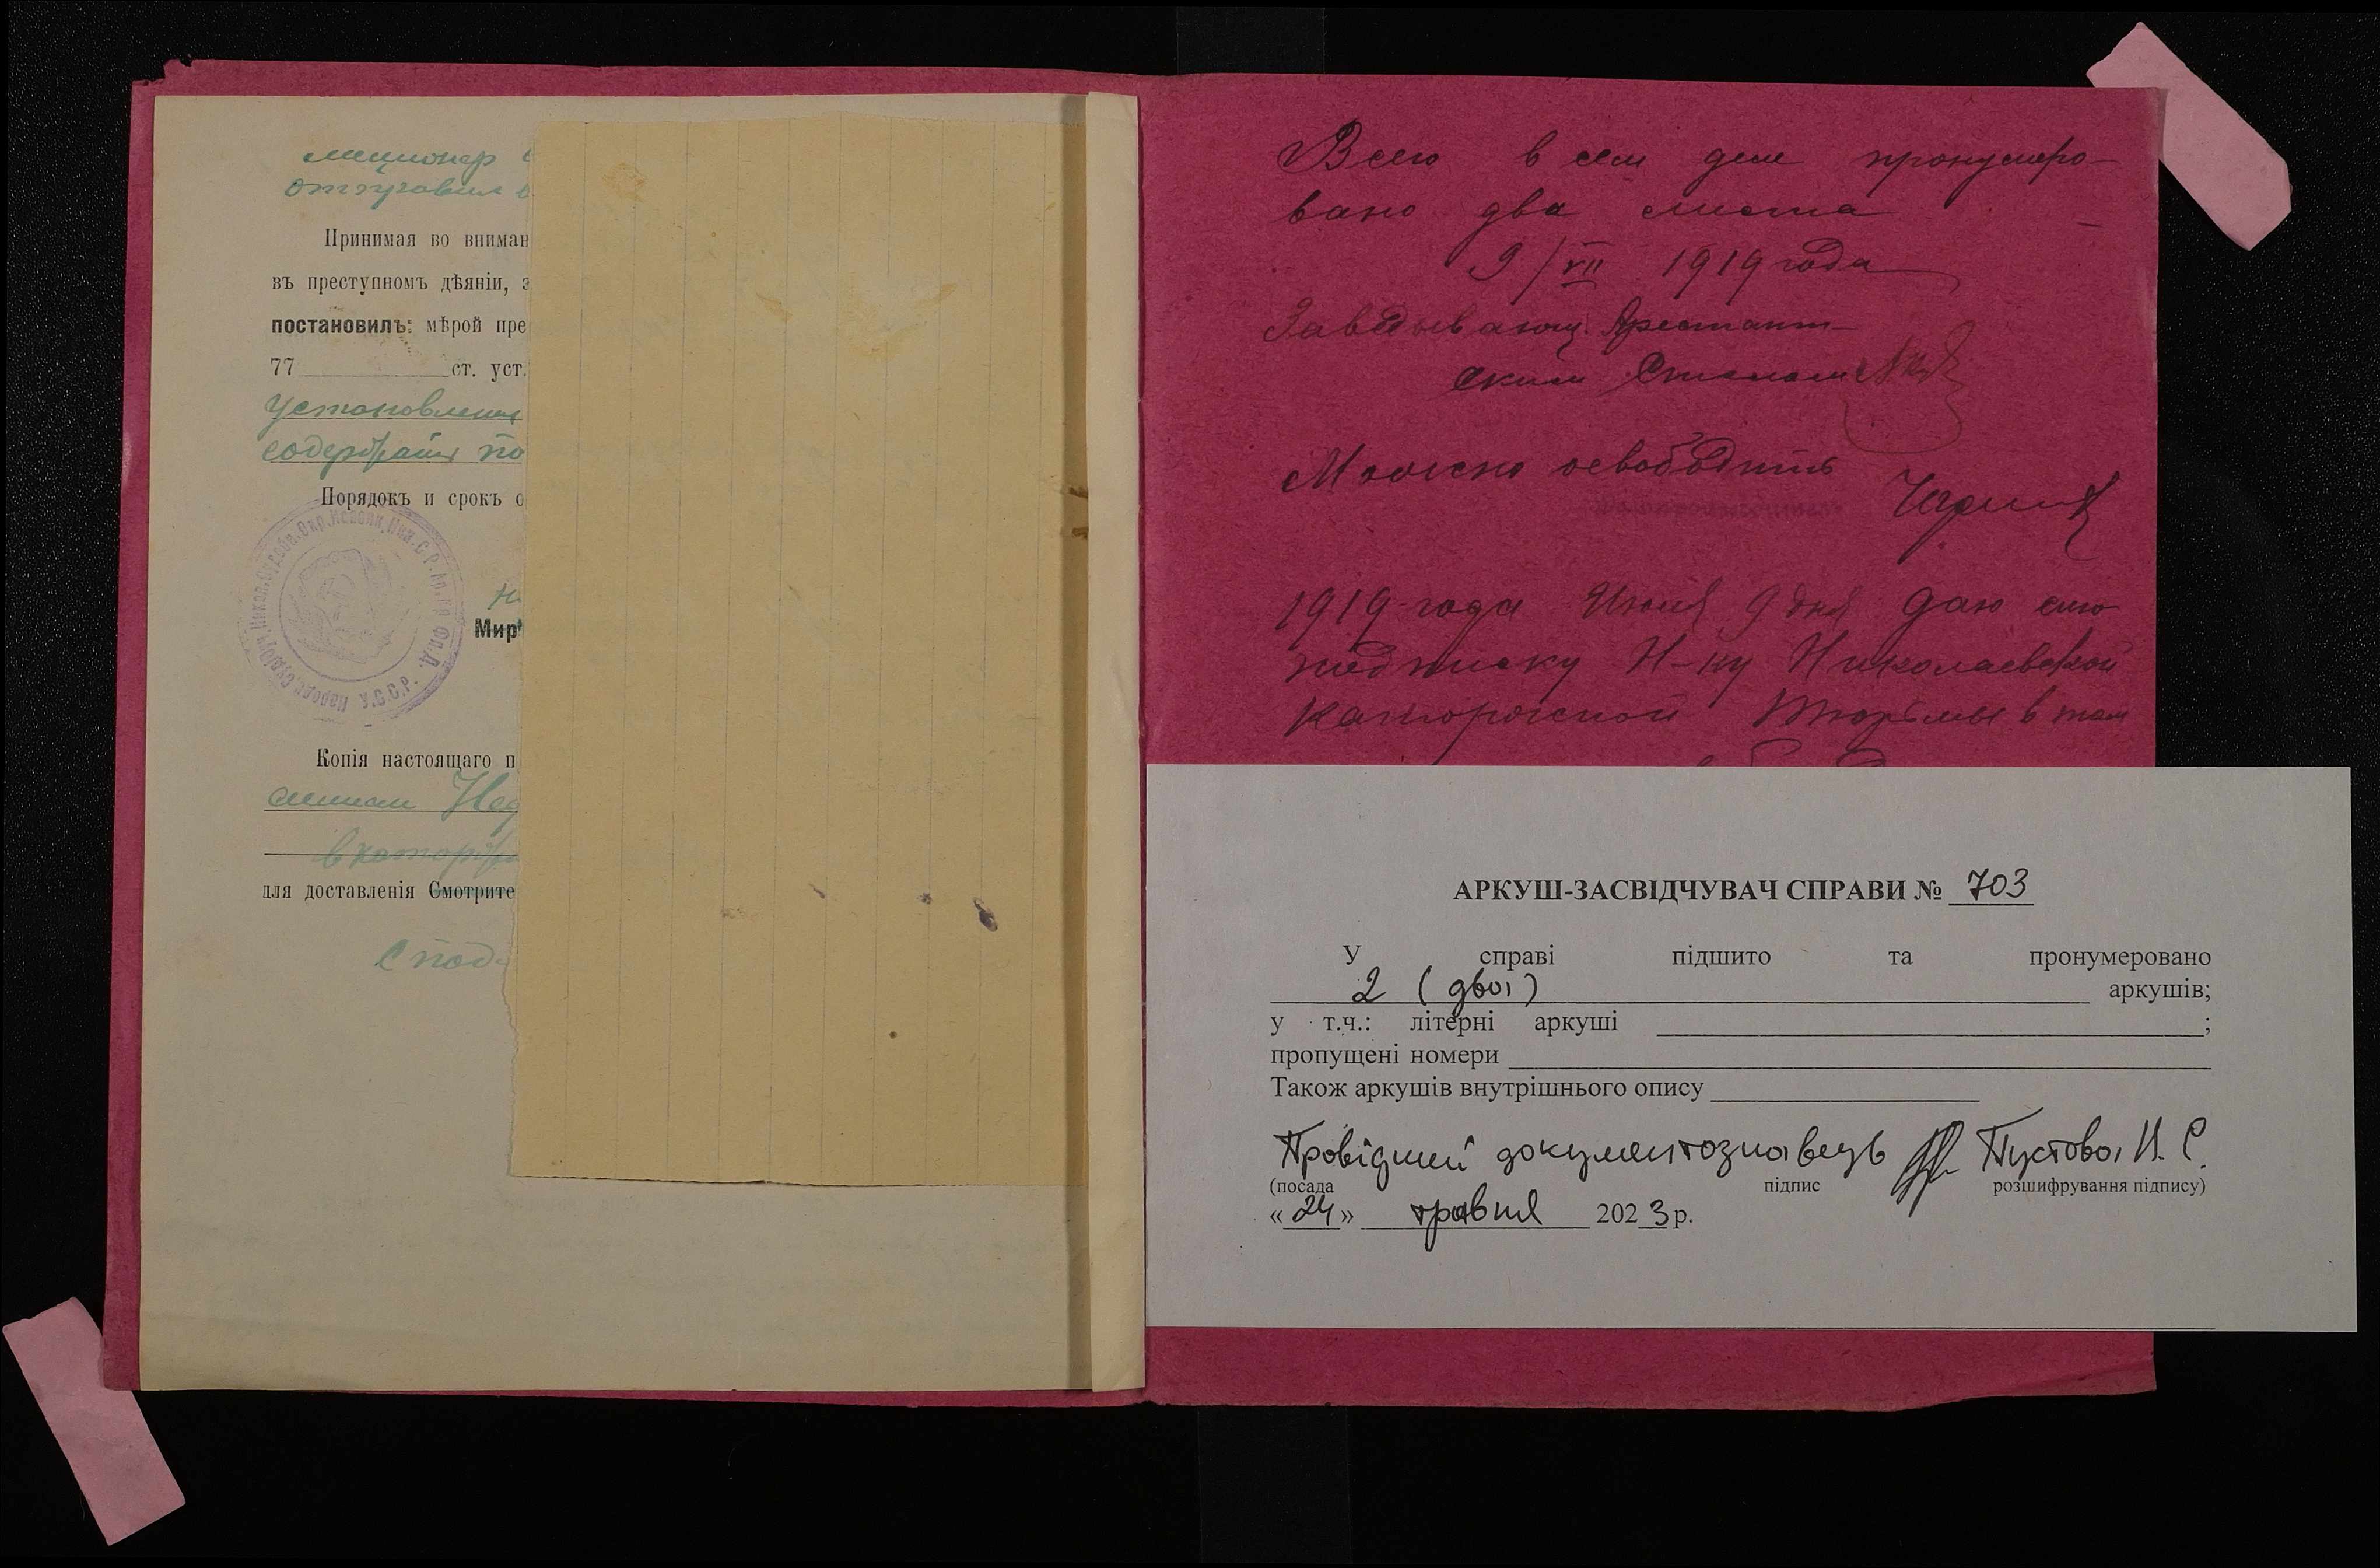 милионер
отправил
Принимая во вниман
въ преступномъ дѣяніи, з
постановилъ: мѣрой пре
77 ст. уст.
Установлен
содержан по
Порядокъ и срокъ о
Мир
Копія настоящаго п
в каторж
для доставленія Смотрите
С под
Всего в сем деле пронумеро-
вано два листа
9/VII 1919 года
Заведывающ. Арестант-
ским Столом
Можно освободить
1919 года Июля 9 дня даю сию
подписку Н-ку Николаевской
Каторжной Тюрьмы в том
АРКУШ-ЗАСВІДЧУВАЧ СПРАВИ № 703
У справі підшито та пронумеровано
2 (два) аркушів;
у т.ч.: літерні аркуші ;
пропущені номери
Також аркушів внутрішнього опису
Провідний документознавець Пустова Н. С.
(посада підпис розшифрування підпису)
«24» травня 2023 р.